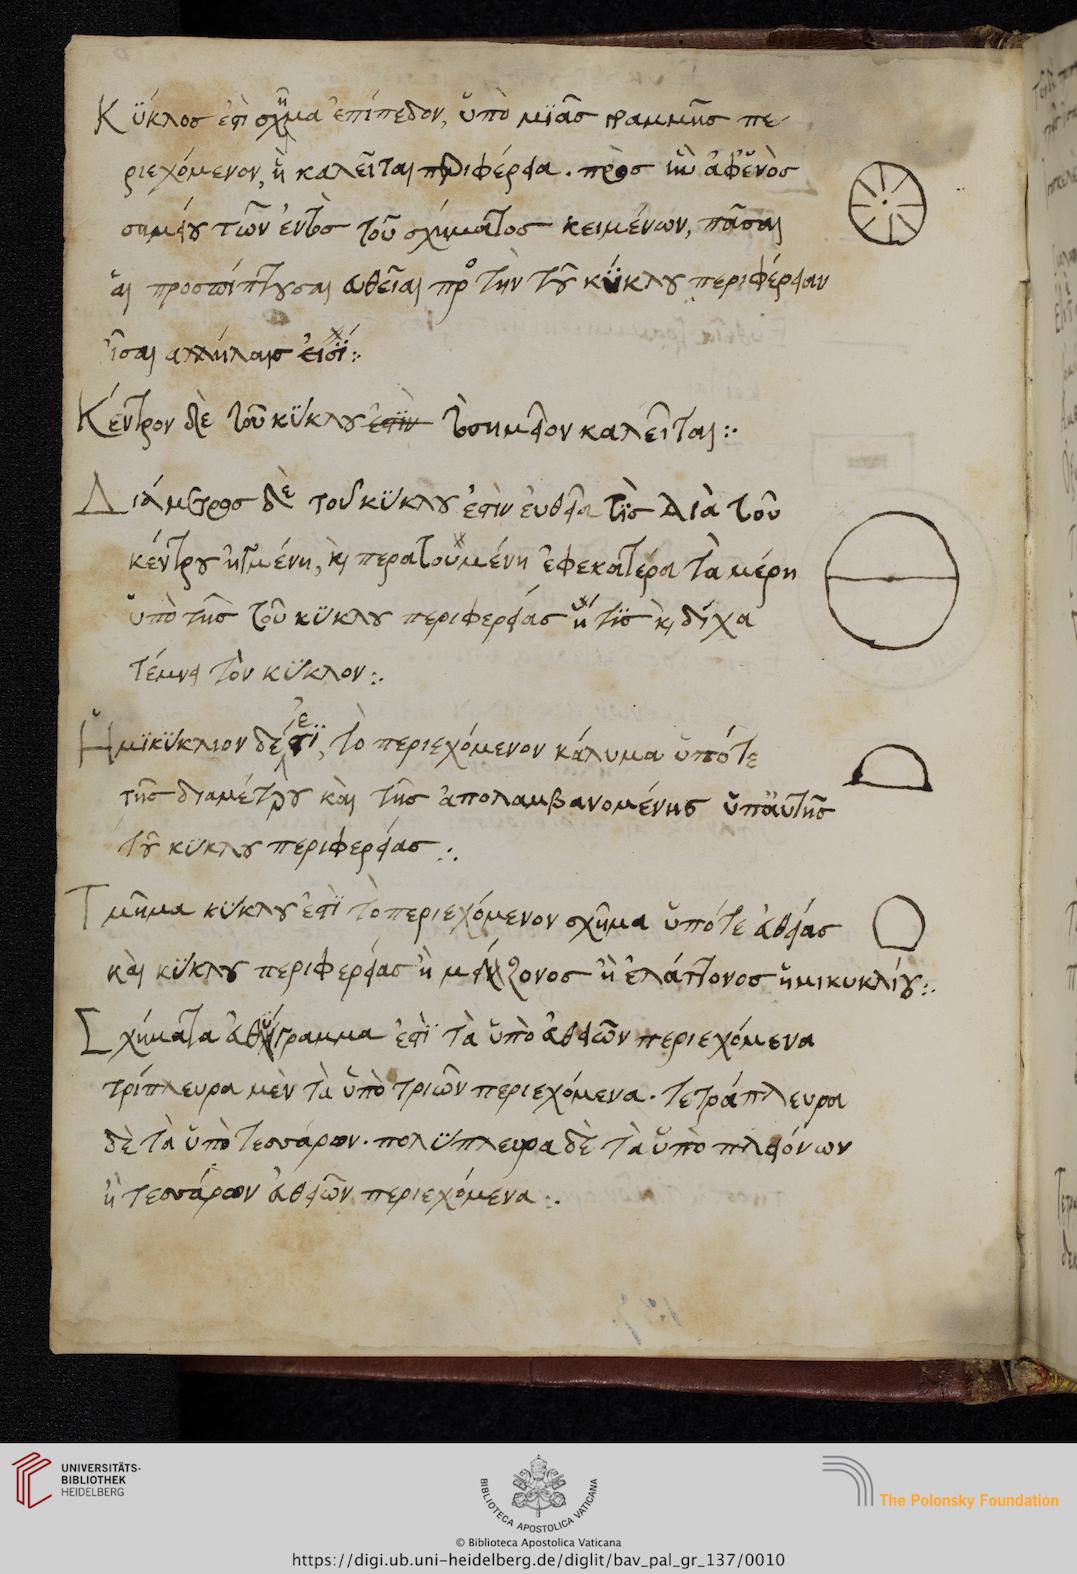 Κύκλος ἐστὶ σχῆμα ἐπίπεδον, ὑπὸ μιᾶς γραμμῆς πε
ριεχόμενον, ἣ καλεῖται περιφέρεια. πρὸς ἣν ἀφ' ἑνὸς
σημείου τῶν ἐντὸς τοῦ σχήματος κειμένων, πᾶσαι
αἱ προσπίπτουσαι εὐθεῖαι πρὸς τὴν τοῦ κύκλου περιφέρειαν
ἴσαι ἀλλήλαις εἰσί:
Κέντρον δὲ τοῦ κύκλου τὸ σημεῖον καλεῖται:
Διάμετρος δὲ τοῦ κύκλου ἐστὶν εὐθεῖα τὶς διὰ τοῦ
κέντρου ἠγμένη, καὶ περατουμένη ἐφ' ἑκατέρα τὰ μέρη
ὑπὸ τῆς τοῦ κύκλου περιφερείας ἥτις καὶ δίχα
τέμνει τὸν κύκλον:
Ἡμικύκλιον δέ ἐστι, τὸ περιεχόμενον ὑπό τε
τῆς διαμέτρου καὶ τῆς ἀπολαμβανομένης ὑπ' αὐτῆς
τοῦ κύκλου περιφερείας:
Τμῆμα κύκλου ἐστὶ τὸ περιεχόμενον σχῆμα ὑπό τε εὐθείας
καὶ κύκλου περιφερείας ἢ μείζονος ἢ ἐλάττονος ἡμικυκλίου:
Σχήματα εὐθύγραμμα ἐστὶ τὰ ὑπὸ εὐθειῶν περιεχόμενα
τρίπλευρα μὲν τὰ ὑπὸ τριῶν περιεχόμενα. τετράπλευρα
δὲ τὰ ὑπὸ τεσσάρων. πολύπλευρα δὲ τὰ ὑπὸ πλειόνων
ἢ τεσσάρων εὐθειῶν περιεχόμενα:
UNIVERSITÄTS-
BIBLIOTHEK
HEIDELBERG
BIBLIOTECA APOSTOLICA VATICANA
The Polonsky Foundation
© Biblioteca Apostolica Vaticana
https://digi.ub.uni-heidelberg.de/diglit/bav_pal_gr_137/0010